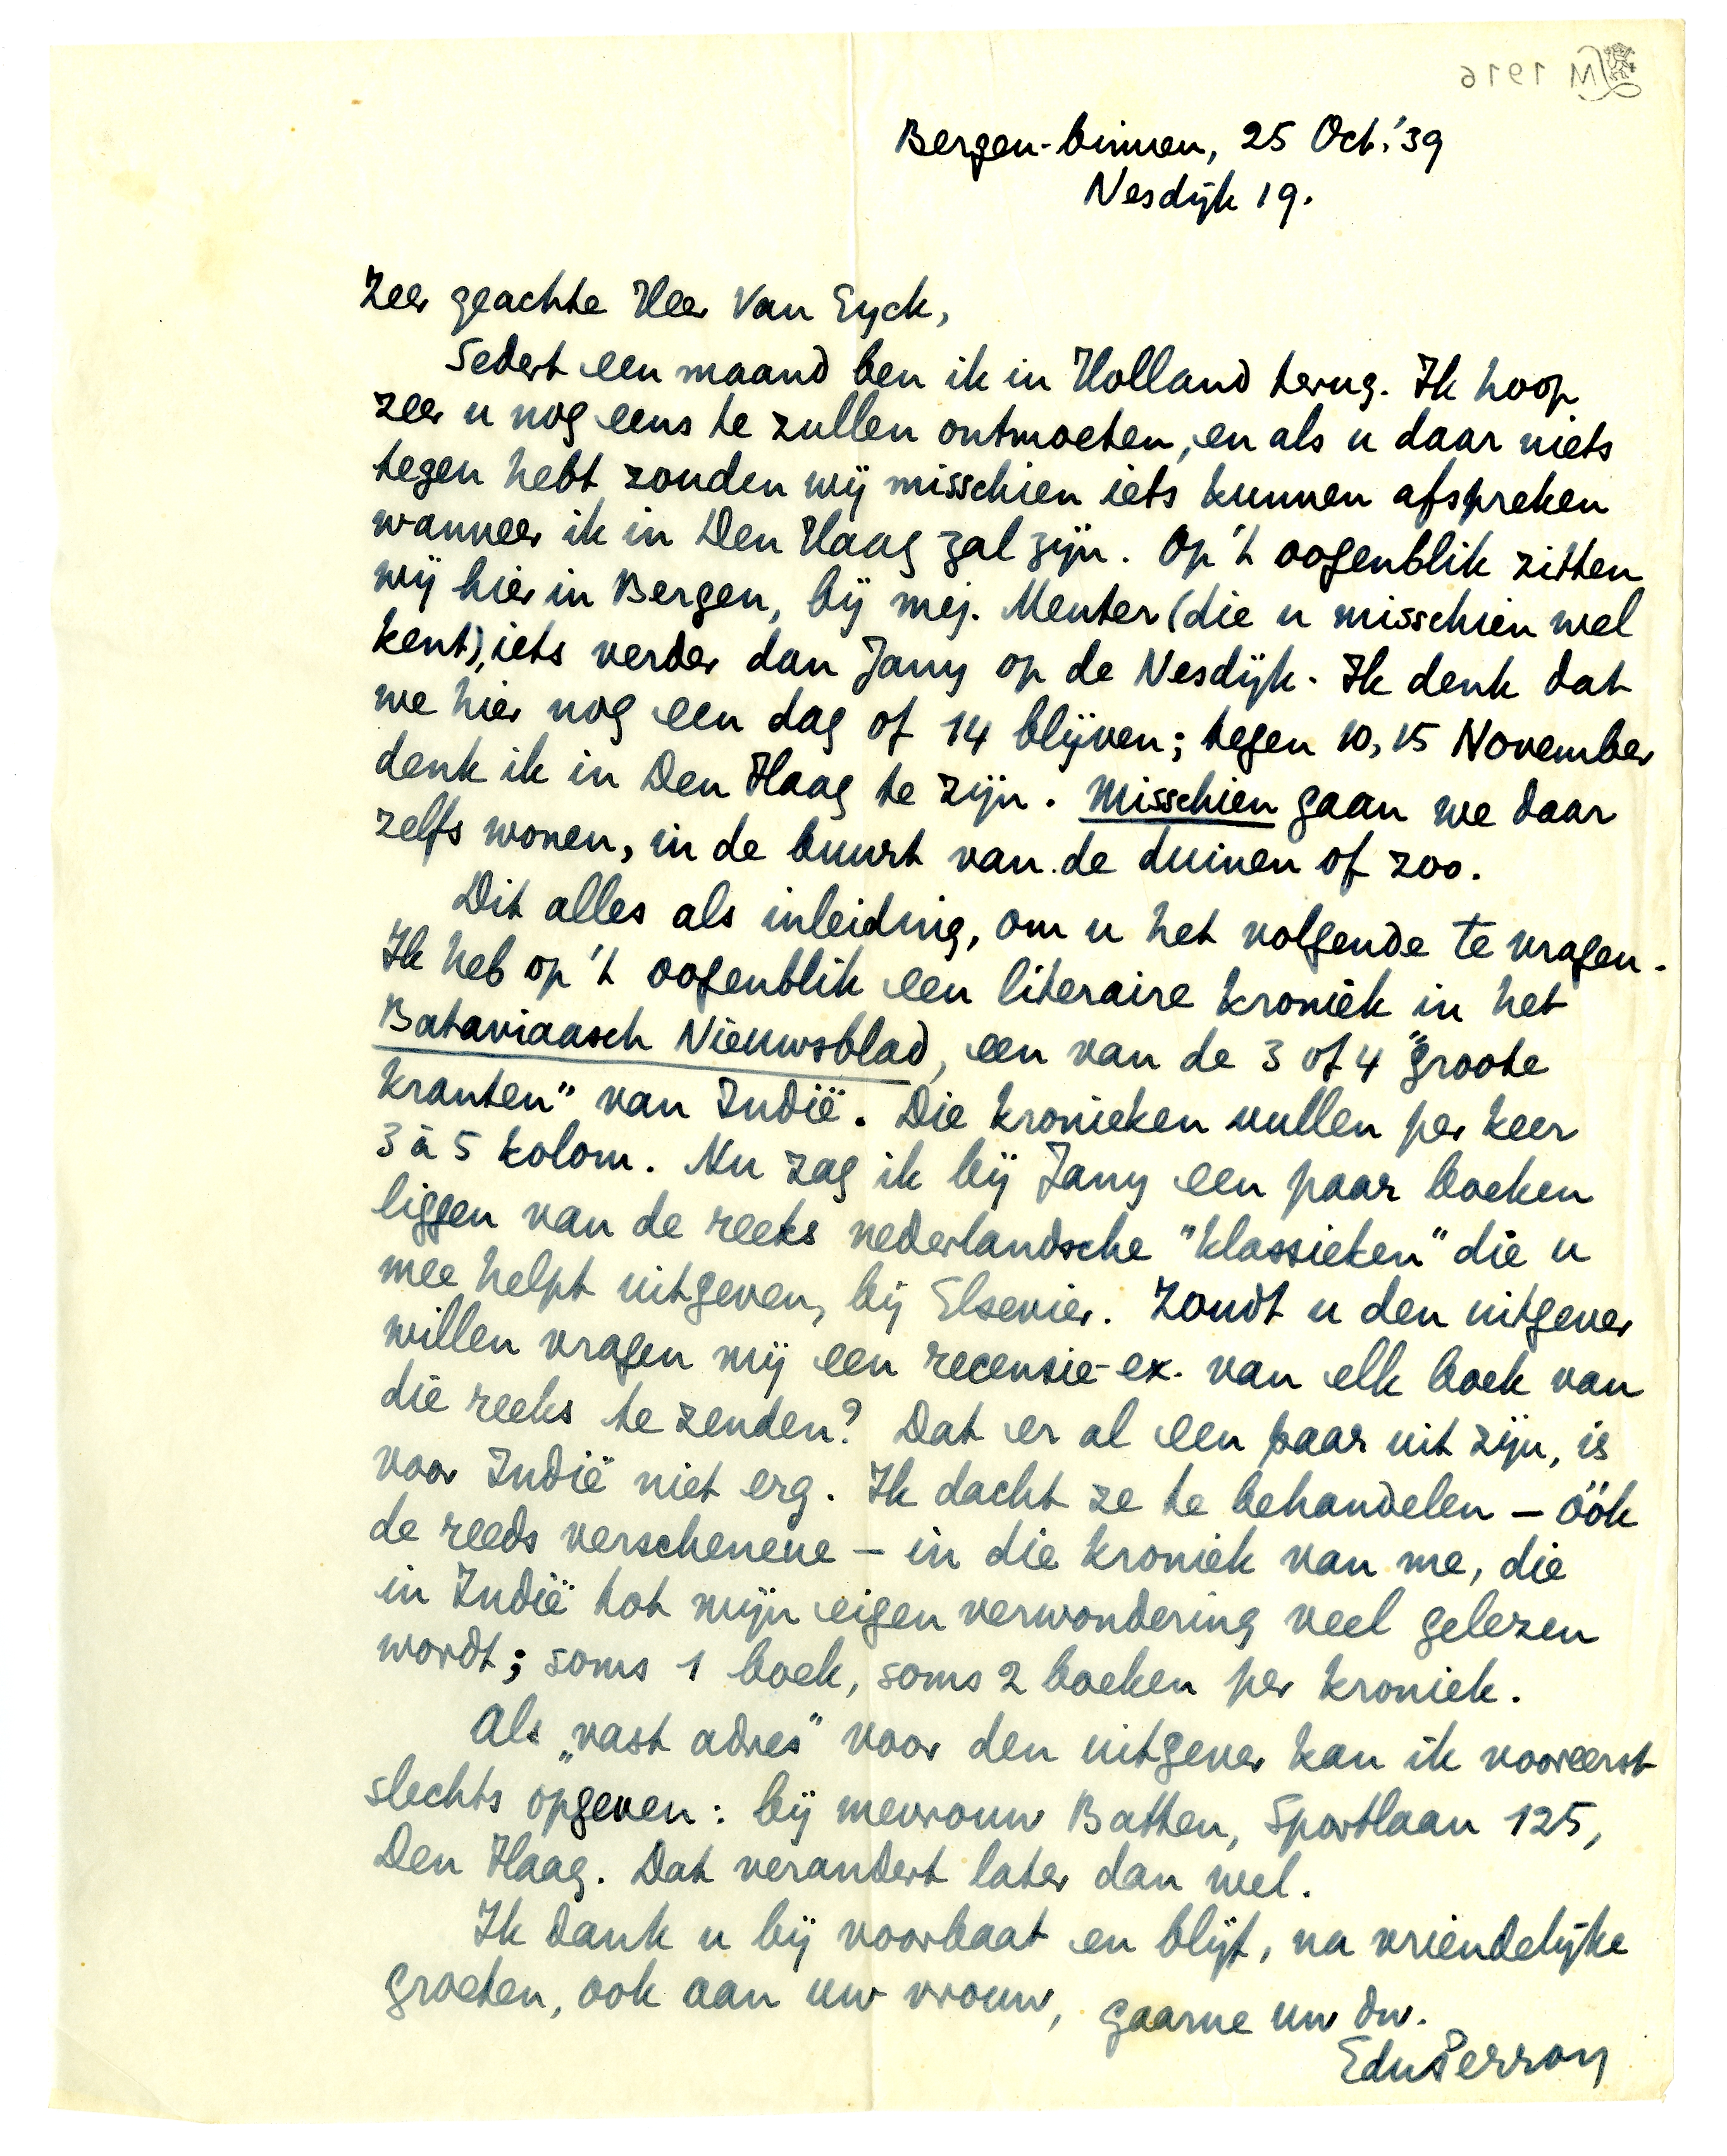 M 1916
Bergen-binnen, 25 Oct. '39
Nesdijk 19.
Zeer geachte Heer Van Eyck,
Sedert een maand ben ik in Holland terug. Ik hoop
zeer u nog eens te zullen ontmoeten, en als u daar niets
tegen hebt zouden wij misschien iets kunnen afspreken
wanneer ik in Den Haag zal zijn. Op 't oogenblik zitten
wij hier in Bergen, bij mej. Menter (die u misschien wel
kent), iets verder dan Jany op de Nesdijk. Ik denk dat
we hier nog een dag of 14 blijven; tegen 10, 15 November
denk ik in Den Haag te zijn. Misschien gaan we daar
zelfs wonen, in de buurt van de duinen of zoo.
Dit alles als inleiding, om u het volgende te vragen.
Ik heb op 't oogenblik een literaire kroniek in het
Bataviaasch Nieuwsblad, een van de 3 of 4 "groote
kranten" van Indië. Die kronieken vullen per keer
3 à 5 kolom. Nu zag ik bij Jany een paar boeken
liggen van de reeks nederlandsche "klassieken" die u
mee helpt uitgeven, bij Elsevier. Zoudt u den uitgever
willen vragen mij een recensie-ex. van elk boek van
die reeks te zenden? Dat er al een paar uit zijn, is
voor Indië niet erg. Ik dacht ze te behandelen – óók
de reeds verschenene – in die kroniek van me, die
in Indië tot mijn eigen verwondering veel gelezen
wordt; soms 1 boek, soms 2 boeken per kroniek.
Als „vast adres" voor den uitgever kan ik vooreerst
slechts opgeven: bij mevrouw Batten, Sportlaan 125,
Den Haag. Dat verandert later dan wel.
Ik dank u bij voorbaat en blijf, na vriendelijke
groeten, ook aan uw vrouw, gaarne uw dw.
EduPerron